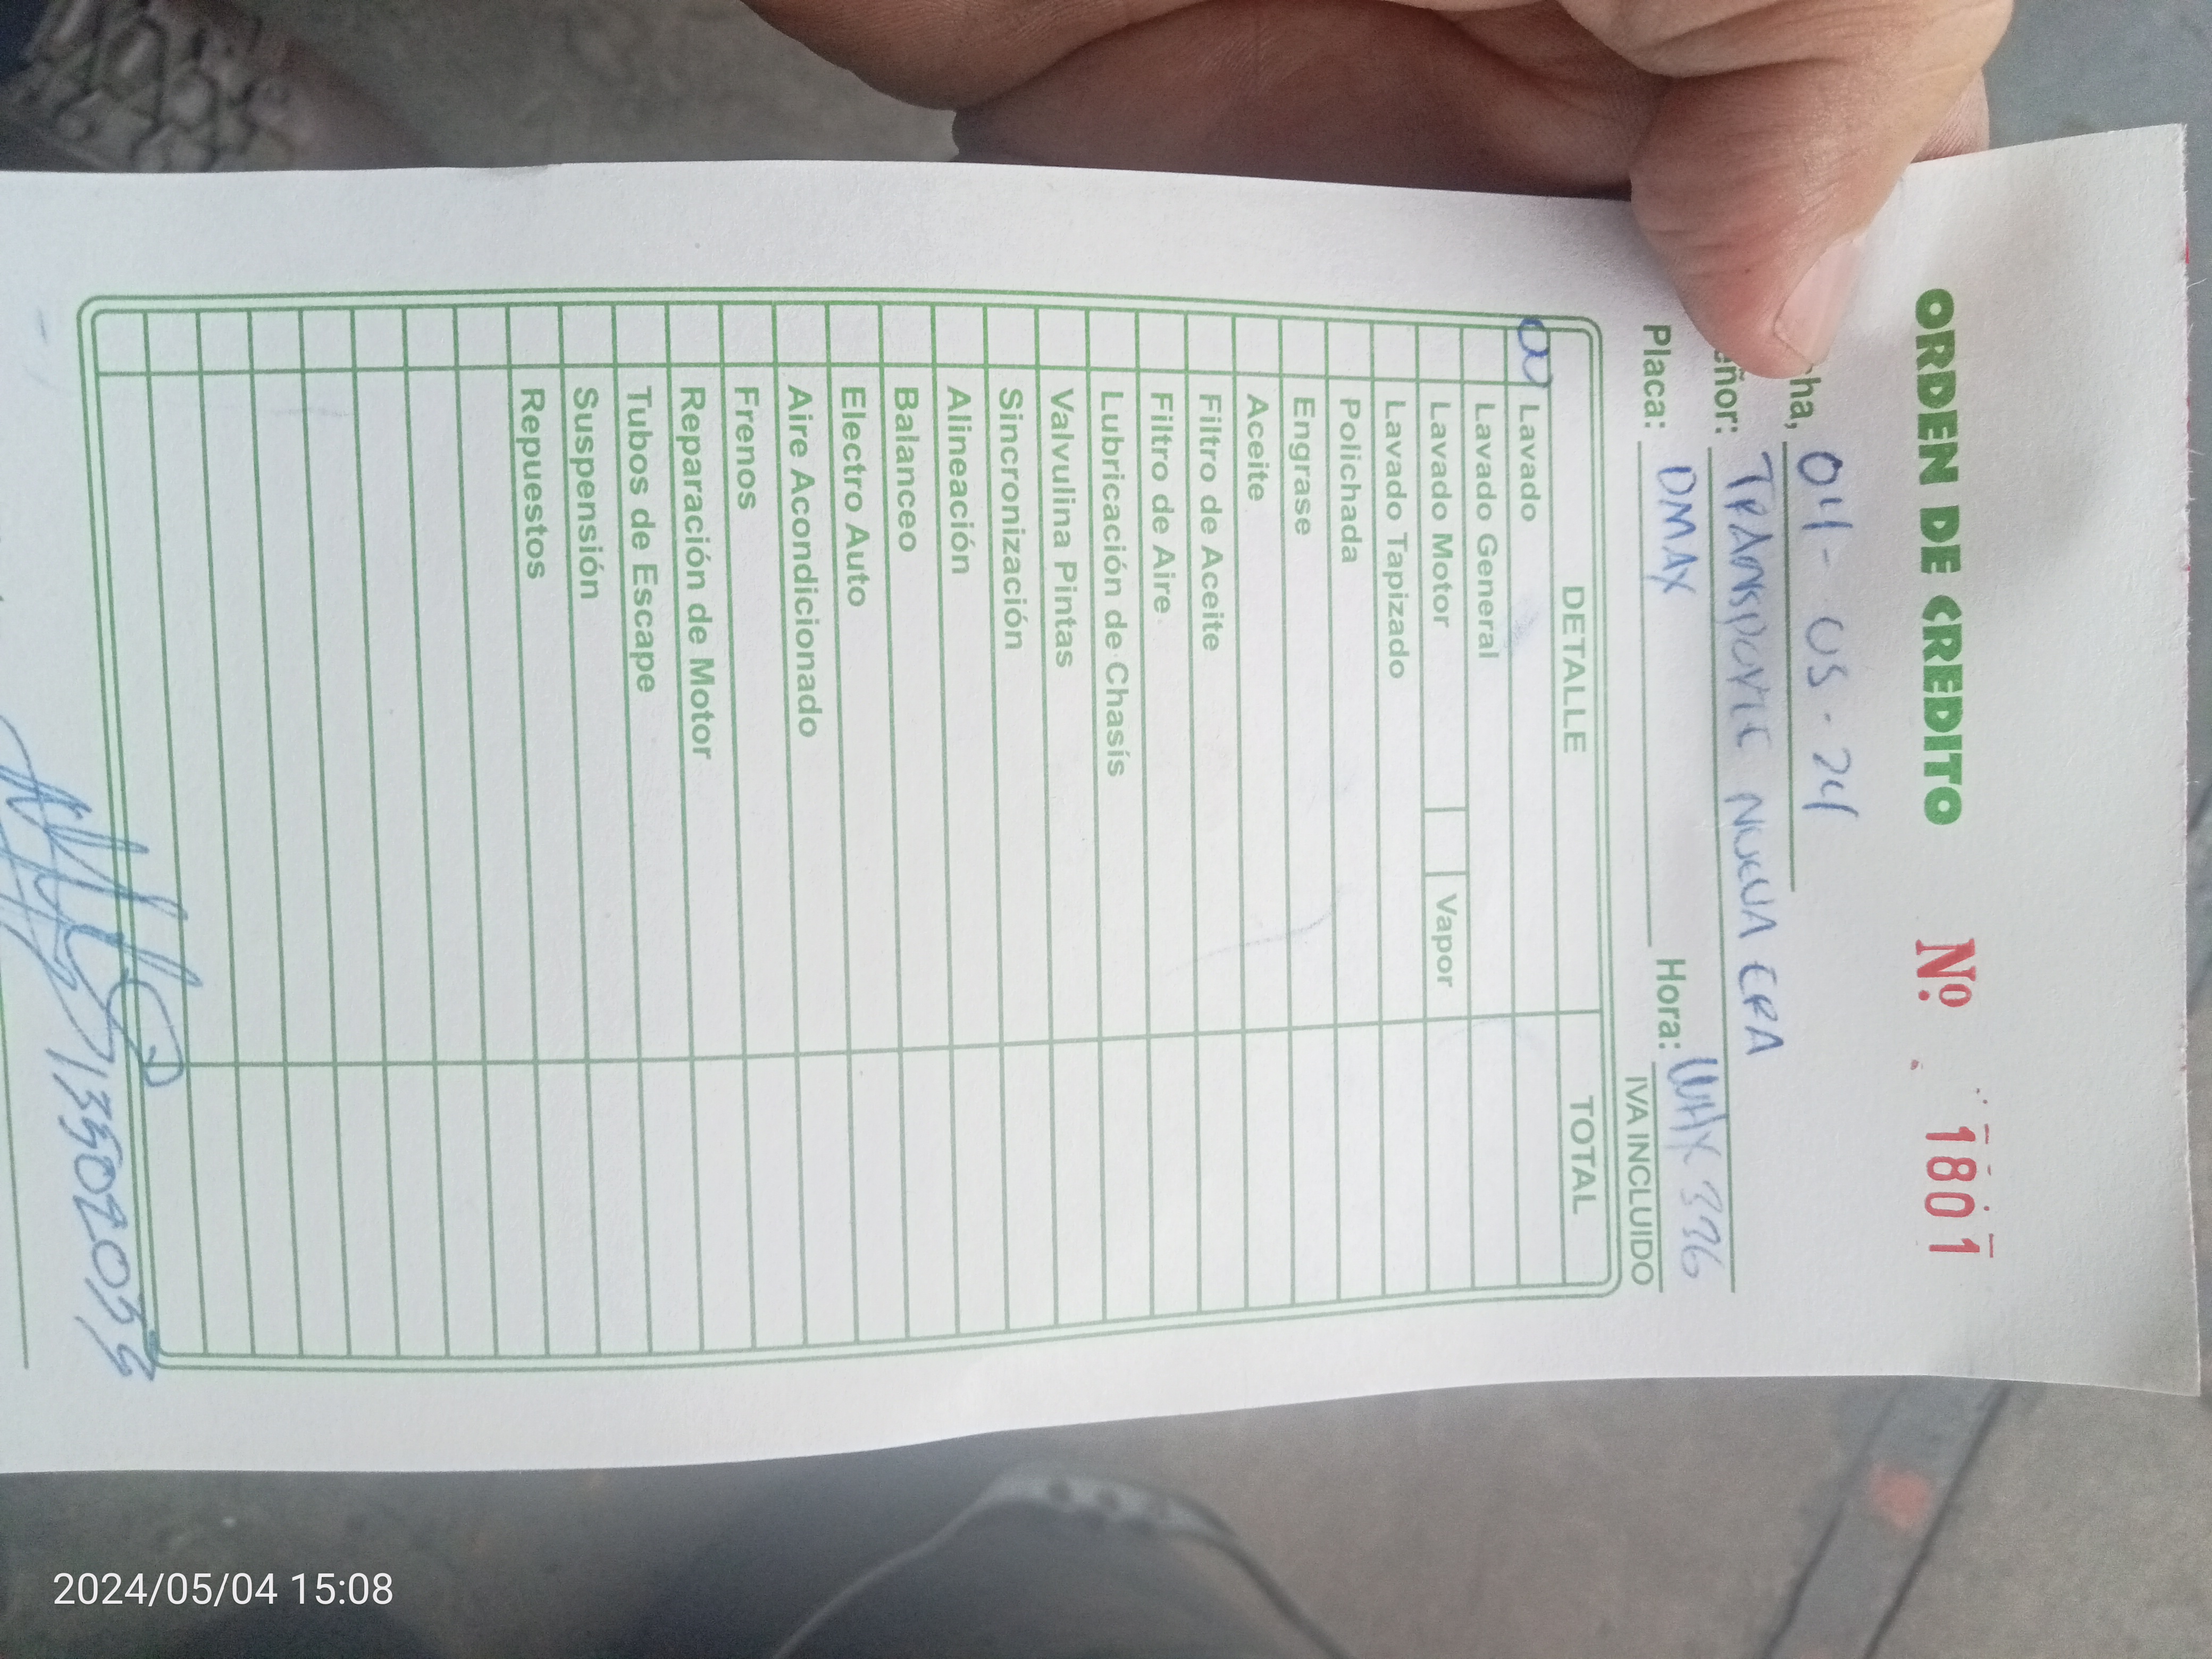 ORDEN DE CREDITO Nº 1801
cha, 04-05-24
eñor: TRANSPORTE NUEVA ERA
Placa: DMAX Hora:
IVA INCLUIDO
DETALLE TOTAL
Lavado
Lavado General
Lavado Motor Vapor
Lavado Tapizado
Polichada
Engrase
Aceite
Filtro de Aceite
Filtro de Aire
Lubricación de Chasís
Valvulina Pintas
Sincronización
Alineación
Balanceo
Electro Auto
Aire Acondicionado
Frenos
Reparación de Motor
Tubos de Escape
Suspensión
Repuestos
2024/05/04 15:08